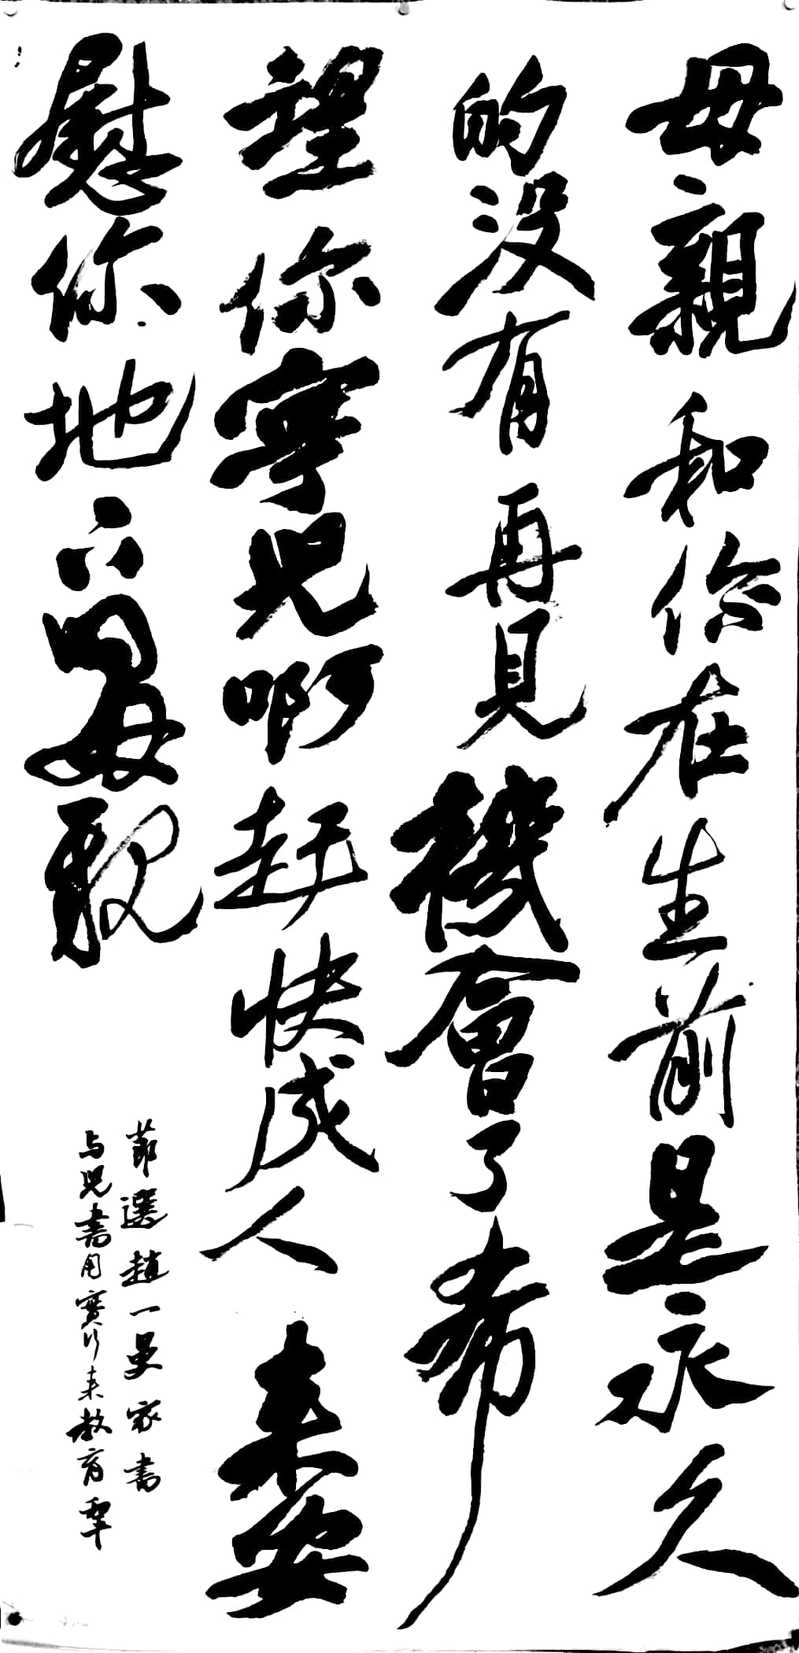 母親和你在生前是永久
的没有再見機會了希
望你寧児啊赶快成人来安
慰你地下的母親
節選趙一曼家書
与児書用實行来教育